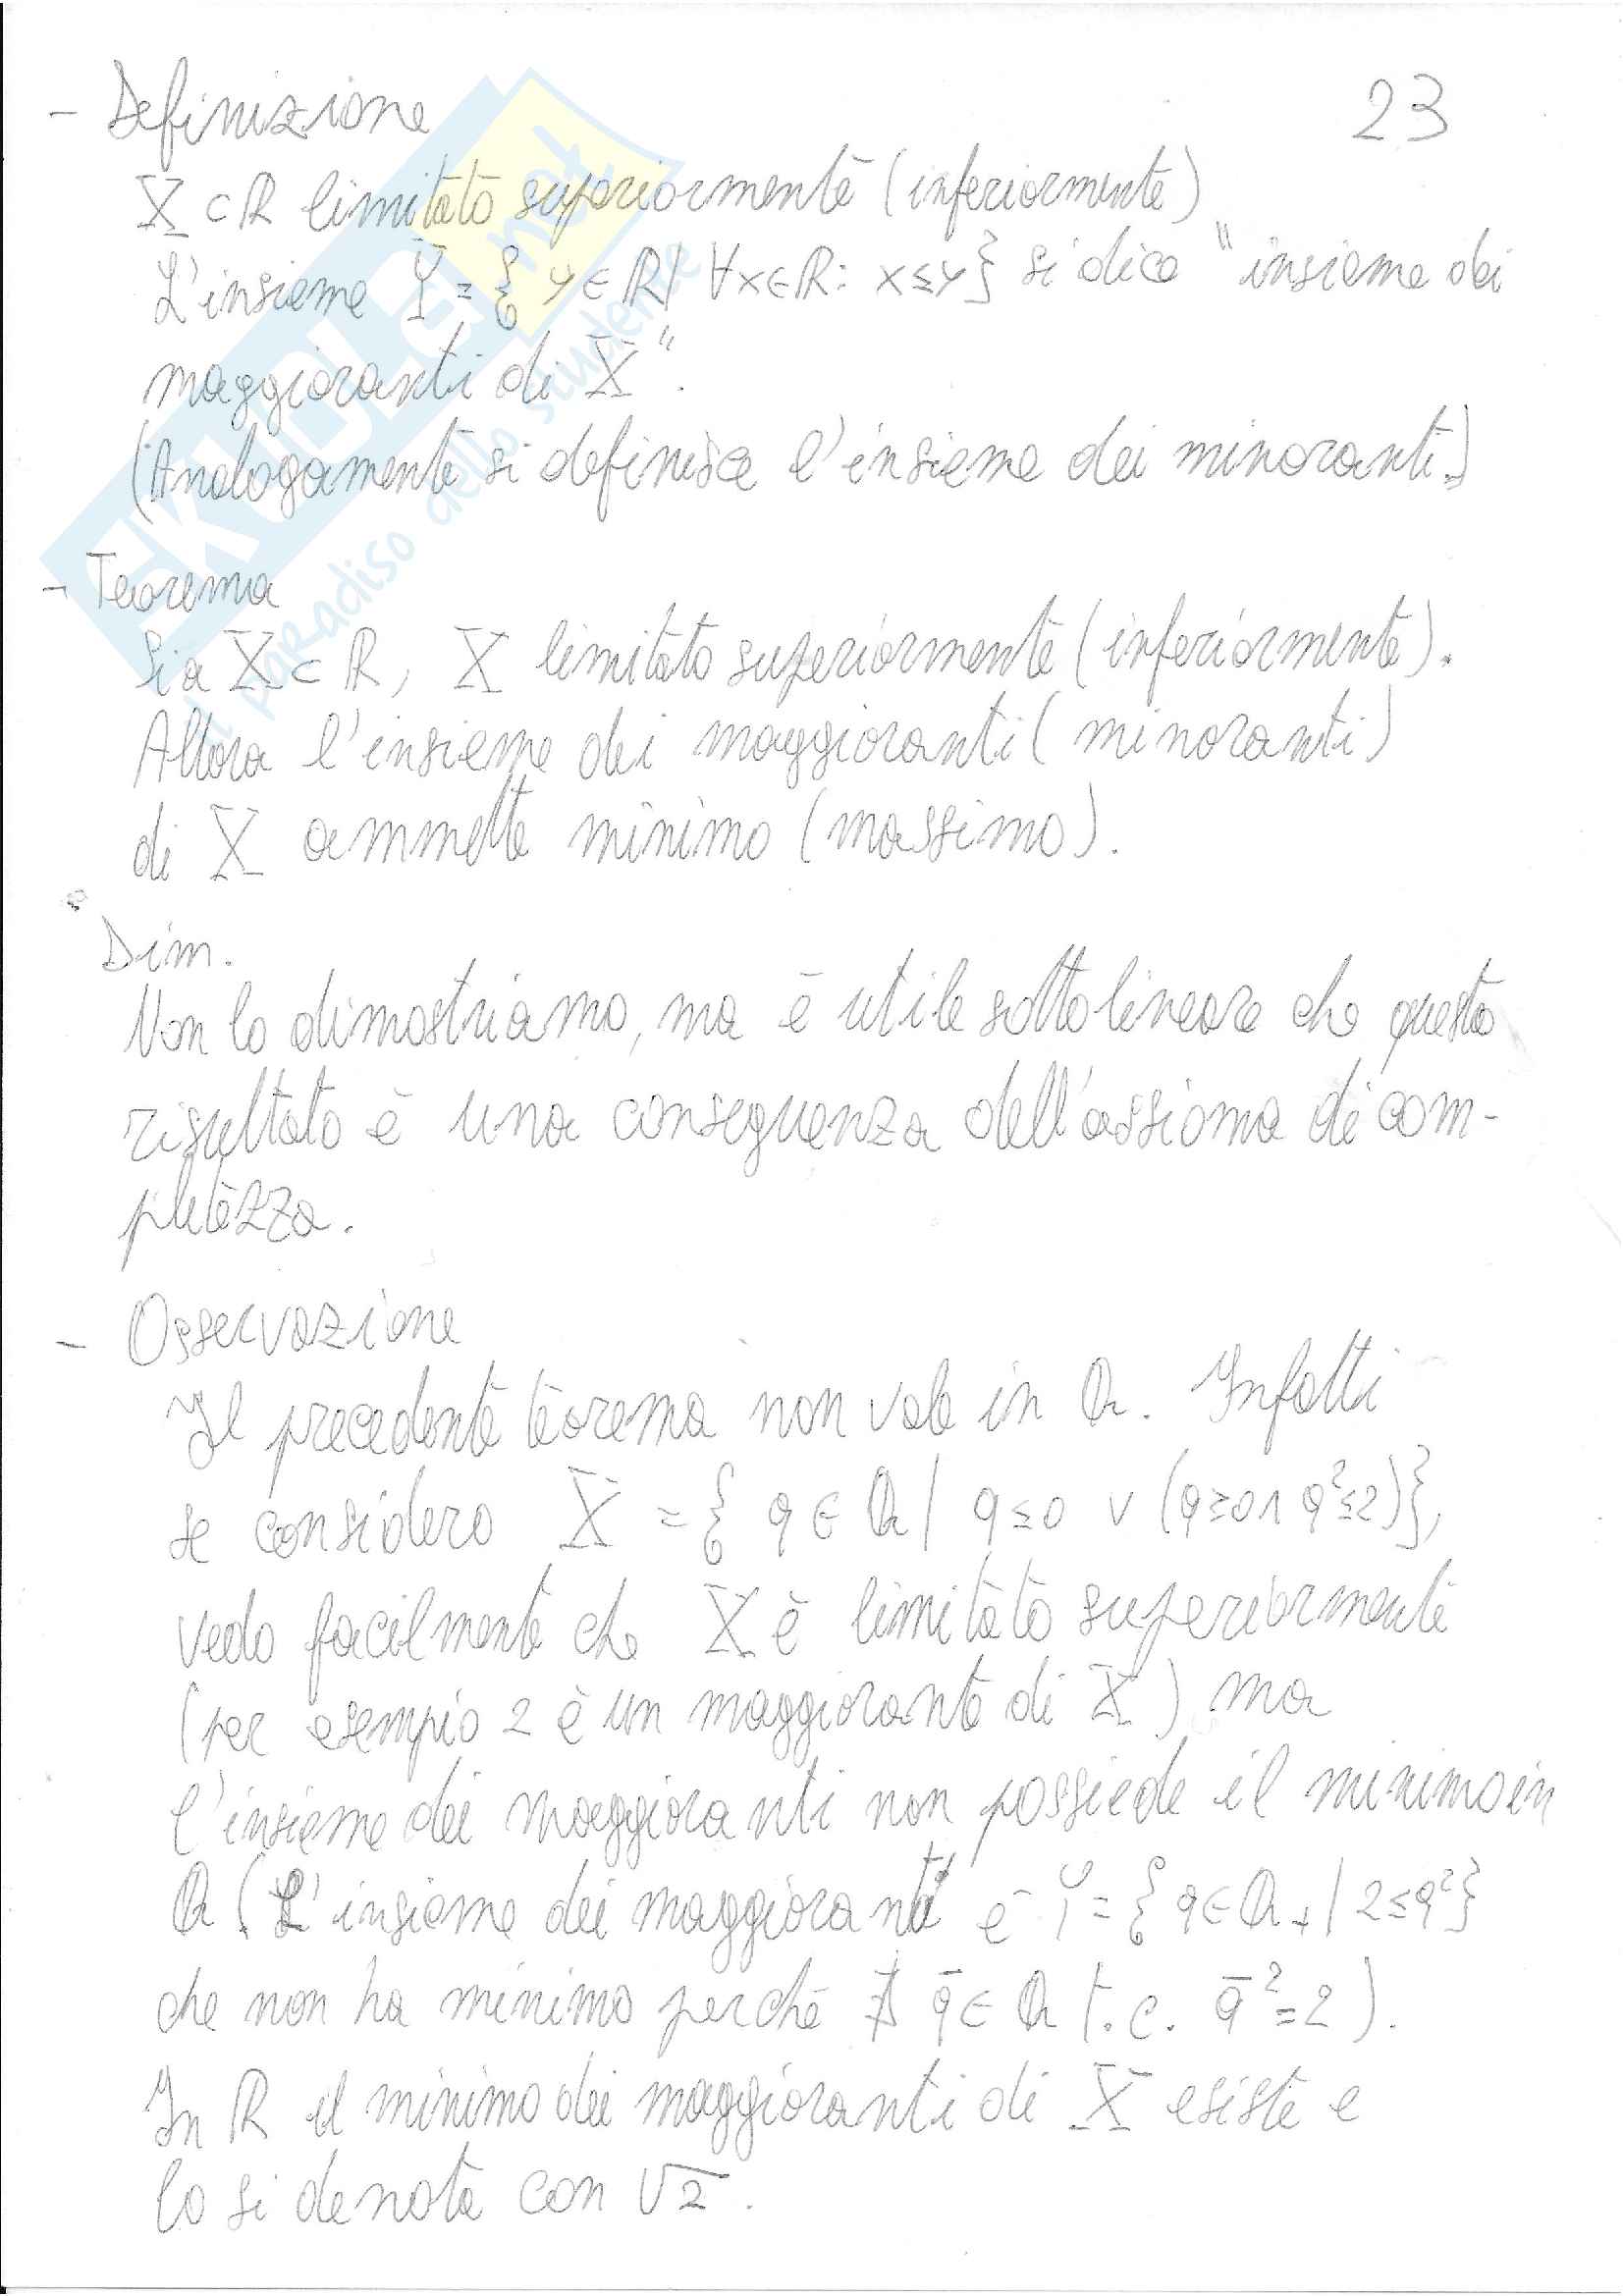 - Definizione
23
X ⊂ ℝ limitato superiormente (inferiormente)
L'insieme Y = { y ∈ ℝ | ∀x∈ℝ: x ≤ y } si dice "insieme dei
maggioranti di X".
(Analogamente si definisce l'insieme dei minoranti.)
- Teorema
Sia X ⊂ ℝ, X limitato superiormente (inferiormente).
Allora l'insieme dei maggioranti (minoranti)
di X ammette minimo (massimo).
Dim.
Non lo dimostriamo, ma è utile sottolineare che questo
risultato è una conseguenza dell'assioma di com-
pletezza.
- Osservazione
Il precedente teorema non vale in ℚ. Infatti
se considero X = { q ∈ ℚ | q ≤ 0 ∨ (q ≥ 0 ∧ q² ≤ 2)},
vedo facilmente che X è limitato superiormente
(per esempio 2 è un maggiorante di X) ma
l'insieme dei maggioranti non possiede il minimo in
ℚ (L'insieme dei maggioranti è Y = { q ∈ ℚ₊ | 2 ≤ q² }
che non ha minimo perché ∄ q̄ ∈ ℚ t.c. q̄² = 2).
In ℝ il minimo dei maggioranti di X esiste e
lo si denota con √2.
SKUOLA.net
il paradiso dello studente